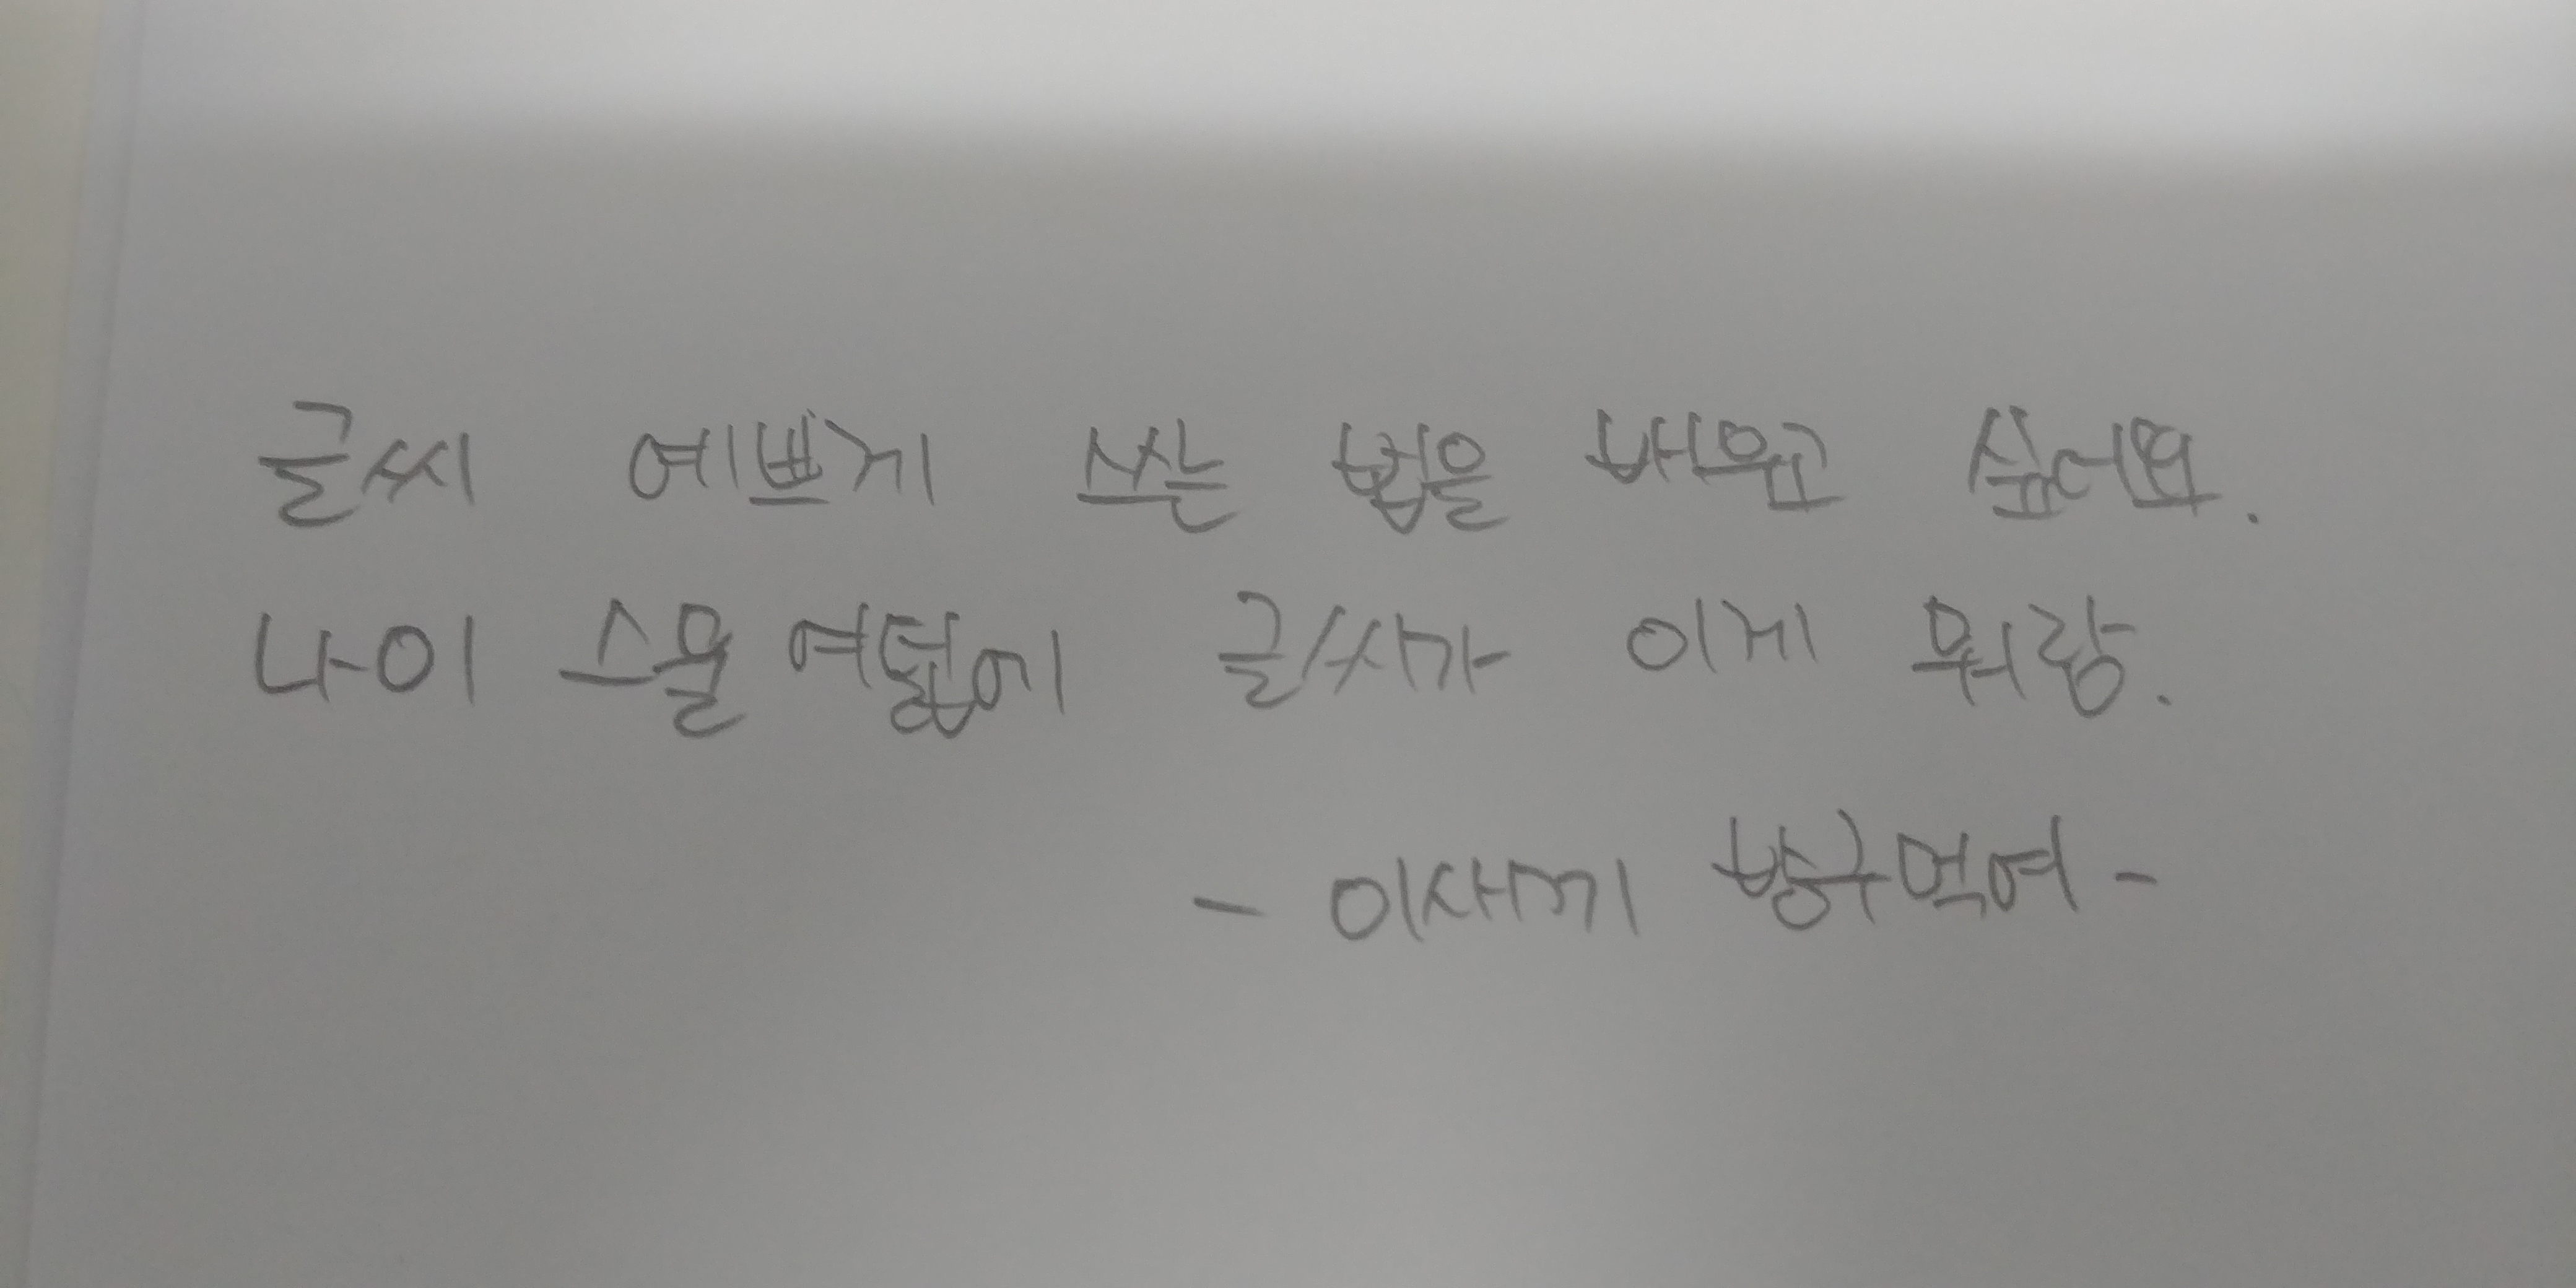 글씨 예쁘게 쓰는 법을 배우고 싶어요.
나이 스물 여덟에 글씨가 이게 뭐람.
- 이사끼 방구먹어 -